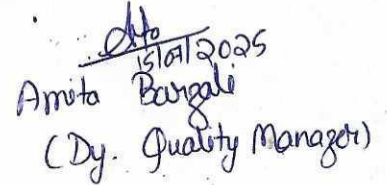 15/07/2025
Amita Bargali
(Dy. Quality Manager)